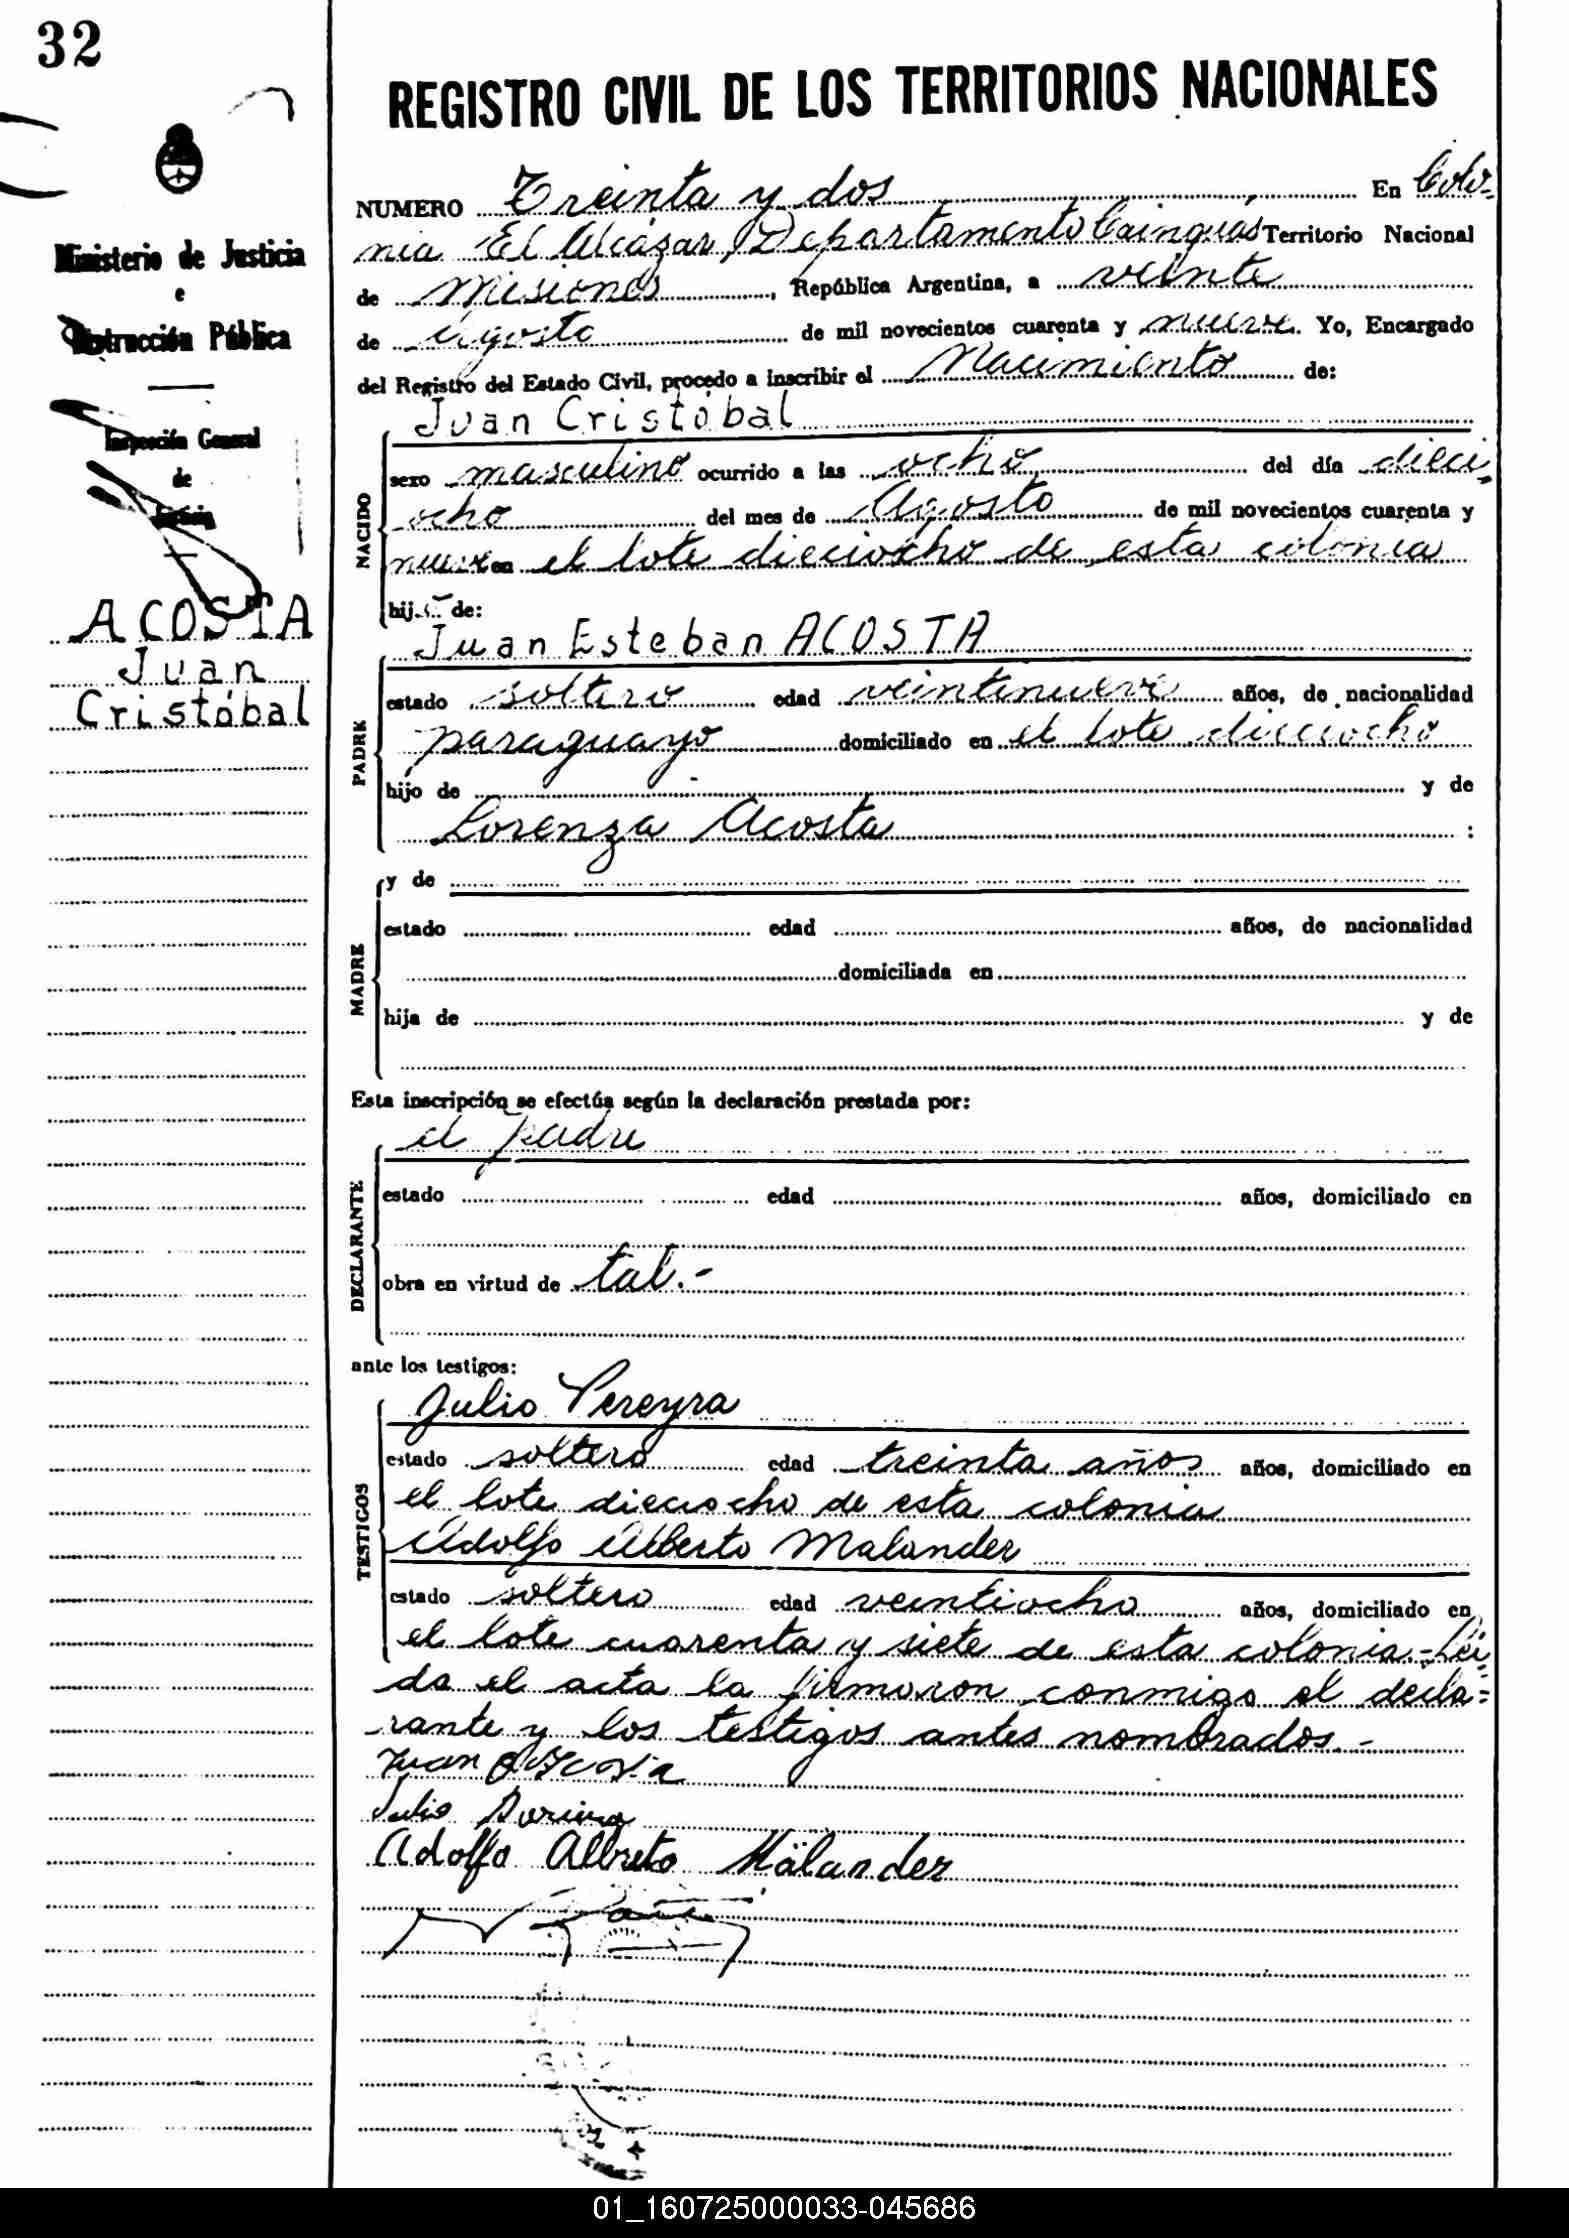 32
Ministerio de Justicia
e
Instrucción Pública
Inspección General
de
Justicia
ACOSTA
Juan
Cristóbal
REGISTRO CIVIL DE LOS TERRITORIOS NACIONALES
NUMERO Treinta y dos En Colo-
nia El Alcázar, Departamento Cainguás Territorio Nacional
de Misiones, República Argentina, a veinte
de Agosto de mil novecientos cuarenta y nueve. Yo, Encargado
del Registro del Estado Civil, procedo a inscribir el Nacimiento de:
Juan Cristóbal
NACIDO
sexo masculino ocurrido a las ocho del día dieci-
ocho del mes de Agosto de mil novecientos cuarenta y
nueve en el lote dieciocho de esta colonia
hijo de:
Juan Esteban ACOSTA
PADRE
estado soltero edad veintinueve años, de nacionalidad
paraguayo domiciliado en el lote dieciocho
hijo de y de
Lorenza Acosta :
MADRE
y de
estado edad años, de nacionalidad
domiciliada en
hija de y de
Esta inscripción se efectúa según la declaración prestada por:
el padre
DECLARANTE
estado edad años, domiciliado en
obra en virtud de tal.-
ante los testigos:
Julio Pereyra
TESTIGOS
estado soltero edad treinta años años, domiciliado en
el lote dieciocho de esta colonia
Adolfo Alberto Malander
estado soltero edad veintiocho años, domiciliado en
el lote cuarenta y siete de esta colonia.- Lei-
da el acta la firmaron conmigo el decla-
rante y los testigos antes nombrados.-
Juan Acosta
Julio
Adolfo Albreto Mälander
01_160725000033-045686